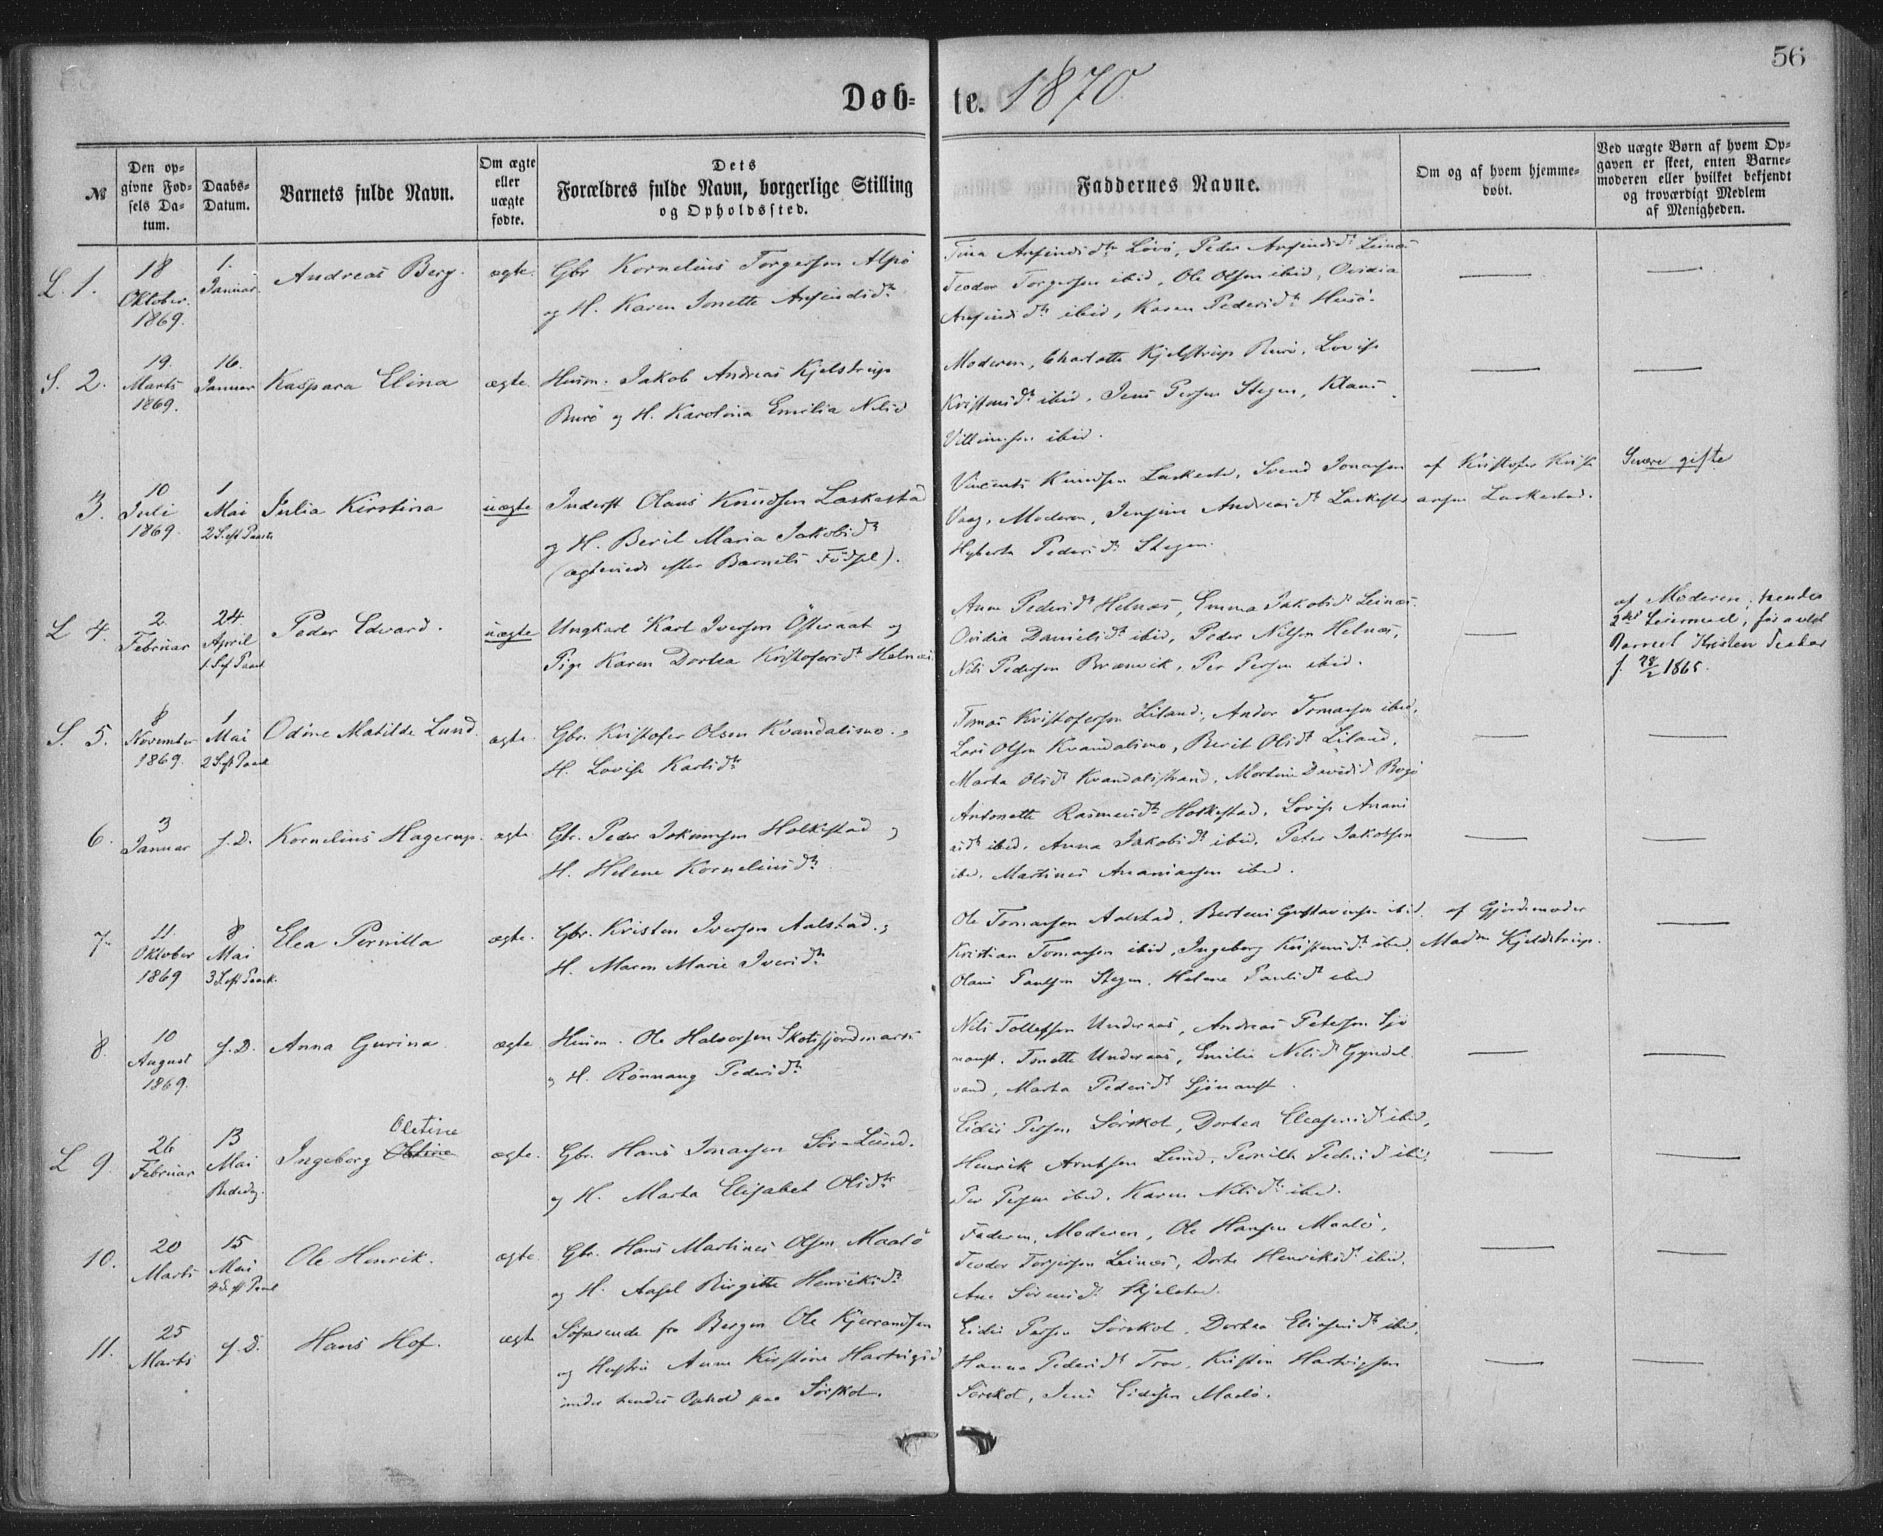 56
Døb- te. 1870
№
Den op-
givne Fød-
sels Da-
tum.
Daabs-
Datum.
Barnets fulde Navn.
Om ægte
eller
uægte
fødte.
Dets
Forældres fulde Navn, borgerlige Stilling
og Opholdssted.
Faddernes Navne.
Om og af hvem hjemme-
døbt.
Ved uægte Børn af hvem Op-
gaven er skeet, enten Barne-
moderen eller hvilket bekjendt
og troværdigt Medlem
af Menigheden.
L. 1.
18
Oktober.
1869.
1.
Januar.
Andreas Berg.
ægte.
Gbr Kornelius Torgersen Alpø
og H. Karen Jonette Arfindsdtr
Tina Arfindsdtr Løvø, Peder Arfindsdtr Leinæs
Teodor Torgersen ibid, Ole Olsen ibid, Ovidia
Arfindsdtr ibid, Karen Pedersdtr Husø.
S. 2.
19.
Marts
1869.
16.
Januar
Kaspara Elina
ægte.
Husm. Jakob Andreas Kjelstrup
Burø og H. Karolina Emilia Nilsd
Moderen, Charlotte Kjelstrup Burø, Lovise
Kristensdtr ibid, Jens Persen Stegen, Klaus
Villumsen ibid.
3.
10
Juli
1869.
1
Mai
2 S. eft Paaske
Julia Kirstina
uægte
Inderst Olaus Knudsen Laskestad
og H. Berit Maria Jakobsdtr
(ægteviede efter Barnets Fødsel).
Vincents Knudsen Laskestad, Svend Jonassen
Vaag, Moderen, Jensine Andreasdtr Laskestad
Hyberta Pedersdtr Stegen.
af Kristofer Kristi
ansen Laskestad.
Senere gifte
L 4.
2
Februar
24
April
1 S. eft Paask
Peder Edvard.
uægte
Ungkarl Karl Iversen Østeraat og
Pige Karen Dortea Kristofersdtr Helnæs
Anne Pedersdtr Helnæs, Emma Jakobsdtr Leinæs.
Ovidia Danielsdtr ibid, Peder Nilsen Helnæs,
Nils Pedersen Brænvik, Per Persen ibid.
af Moderen; hendes
2det Leiermaal, før avlet
Barnet Kristen
f. 28/2 1865.
S. 5.
8
November
1869.
1
Mai
2 S. eft Paask
Odine Matilde Lund.
ægte.
Gbr. Kristofer Olsen Kvandalsmo. og
H. Lovise Karlsdtr
Tomas Kristofersen Liland, Andor Tomassen ibid,
Lars Olsen Kvandalsmo, Berit Olsdtr Liland,
Marta Olsdtr Kvandalstrand, Mortine Davidsd Bogø
6.
3
Januar
s. D.
Kornelius Hagerup.
ægte.
Gbr. Peder Jokumsen Holkestad og
H. Helene Korneliusdtr
Antonette Rasmusdtr Holkestad, Lovise Anani
asdtr ibid, Anna Jakobsdtr ibid, Peter Jakobsen
ibid, Martinus Ananiassen ibid.
7.
11.
Oktober
1869
8
Mai
3 S. eft Paask.
Elea Pernilla
ægte.
Gbr. Kristen Iversen Aalstad. og
H. Maren Marie Iversdtr
Ole Tomassen Aalstad, Berteus Gustavussen ibid.
Kristian Tomassen ibid, Ingeborg Kristensdtr ibid.
Olaus Paulsen Stegen, Helene Paulsdtr ibid
af Gjordemoder
Madm Kjeldstrup.
8.
10
August
1869.
s. D.
Anna Gurina.
ægte
Husm. Ole Halvorsen Skotsfjordmark
og H. Rønnaug Pedersdtr
Nils Tollefsen Underaas, Andreas Petersen Sjø
naust, Tonette Underaas, Emilie Nilsdtr Gyndel
vand, Marta Pedersdtr Sjønaust.
L 9.
26
Februar
13
Mai
Bededag.
Oletine
Ingeborg
ægte.
Gbr. Hans Jonassen Sør-Lund.
og H. Marta Elisabet Olsdtr
Eidis Persen Sørskot, Dortea Eleasensdtr ibid,
Henrik Arntsen Lund, Pernille Pedersd ibid,
Per Persen ibid, Karen Nilsdtr ibid.
10.
20
Marts
15
Mai
4 S. eft Paask
Ole Henrik.
ægte.
Gbr. Hans Martinus Olsen Maalø
og H. Aasel Birgitte Henriksdtr
Faderen, Moderen, Ole Hansen Maalø,
Teodor Torgersen Leinæs, Dorte Henriksdtr ibid,
Ane Sørensdtr Skjelstad.
11.
25
Marts
s. D.
Hans Hof.
ægte
Søfarende fra Bergen Ole Kjerrandsen
og Hustru Anne Kirstine Hartvigsd
under hendes Ophold paa Sørskot.
Eidis Persen Sørskot, Dortea Eliasensdtr ibid,
Hanna Pedersdtr Trov, Kristen Hartvigsen
Sørskot, Jens Eidissen Maalø.